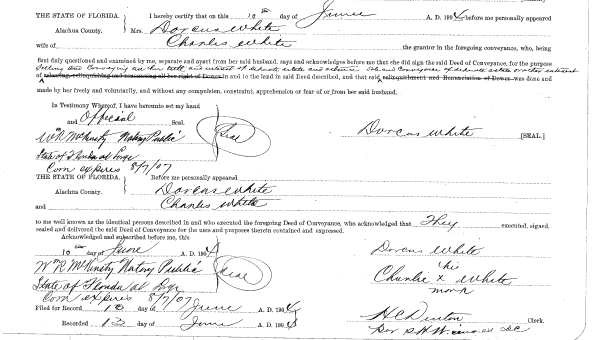 THE STATE OF FLORIDA. } I hereby certify that on this 10th day of June A. D. 1904 before me personally appeared
Alachua County. Mrs. Dorcus White
wife of Charles White the grantor in the foregoing conveyance, who, being
first duly questioned and examined by me, separate and apart from her said husband, says and acknowledges before me that she did sign the said Deed of Conveyance, for the purpose
Selling and Conveying all her right and interest of separate estate Sale and Conveyance of separate estate or other interest
of releasing, relinquishing and renouncing all her right of Dower in and to the land in said Deed described, and that said relinquishment and Renunciation of Dower was done and
made by her freely and voluntarily, and without any compulsion, constraint, apprehension or fear of or from her said husband.
In Testimony Whereof, I have hereunto set my hand
and Official Seal.
Wm R McKinstry Notary Public (Seal) Dorcus White [SEAL.]
State of Florida at Large
Com expires 8/7/07
THE STATE OF FLORIDA. } Before me personally appeared
Alachua County. Dorcus White
and Charles White
to me well known as the identical persons described in and who executed the foregoing Deed of Conveyance, who acknowledged that They executed, signed,
sealed and delivered the said Deed of Conveyance for the uses and purposes therein contained and expressed.
Acknowledged and subscribed before me, this
10th day of June A. D. 1904 Dorcus White
Wm R McKinstry Notary Public (Seal) his
State of Florida at Large Charlie x White
Com expires 8/7/07 mark
Filed for Record 13 day of June A. D. 1904 H C Denton Clerk.
Recorded 13 day of June A. D. 1904 Per S H DC